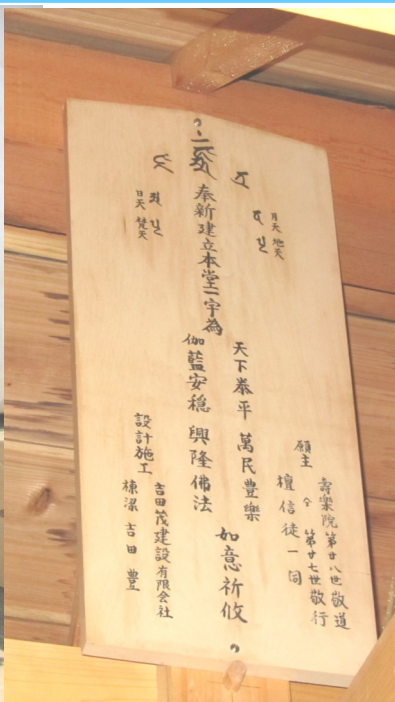 月天 地天
日天 梵天
奉新建立本堂一宇為
天下泰平 萬民豊樂
伽藍安穏 興隆佛法
如意祈攸
願主 壽樂院第廿八世敬道
仝 第廿七世敬行
檀信徒一同
設計施工 吉田茂建設有限会社
棟梁 吉田豊